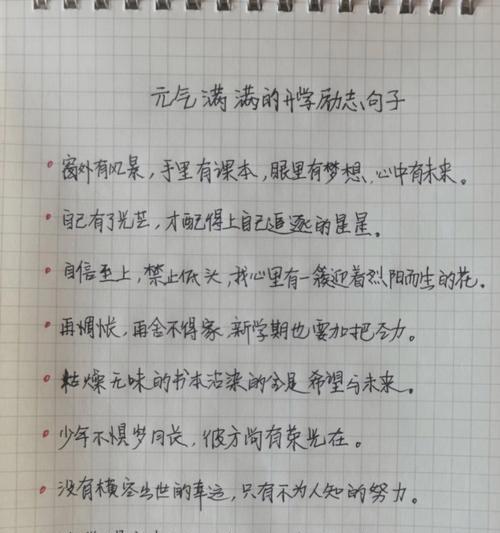 元气满满的开学励志句子
窗外有风景，手里有课本，眼里有梦想，心中有未来。
自己有了光芒，才配得上自己追逐的星星。
自信至上，禁止低头，我心里有一簇迎着烈阳而生的花。
再惆怅，再舍不得家，新学期也要加把全力。
枯燥无味的书本沾染的全是希望与未来。
少年不惧岁月长，彼方尚有荣光在。
没有横空出世的幸运，只有不为人知的努力。